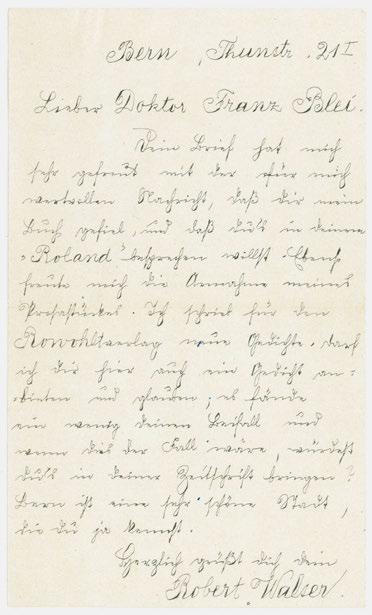 Bern, Thunstr. 21 I
Lieber Doktor Franz Blei.
Dein Brief hat mich
sehr gefreut mit der für mich
wertvollen Nachricht, daß dir mein
Buch gefiel, und daß du's in deinem
„Roland“ besprechen willst. Ebenso
freute mich die Annahme meines
Prosastückes. Ich schrieb für den
Rowohltverlag neue Gedichte. Darf
ich dir hier auch ein Gedicht an-
bieten und glauben, es fände
ein wenig deinen Beifall und
wenn dies der Fall wäre, würdest
du's in deiner Zeitschrift bringen?
Bern ist eine sehr schöne Stadt,
die du ja kennst.
Herzlich grüßt dich dein
Robert Walser.